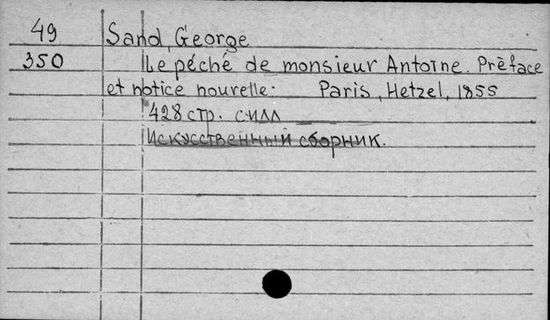 49 Sand, George
350 Le péché de monsieur Antoine. Prèface
et notice nouvelle. Paris, Hetzel, 1855
428 стр. с илл
Искусственный сборник.